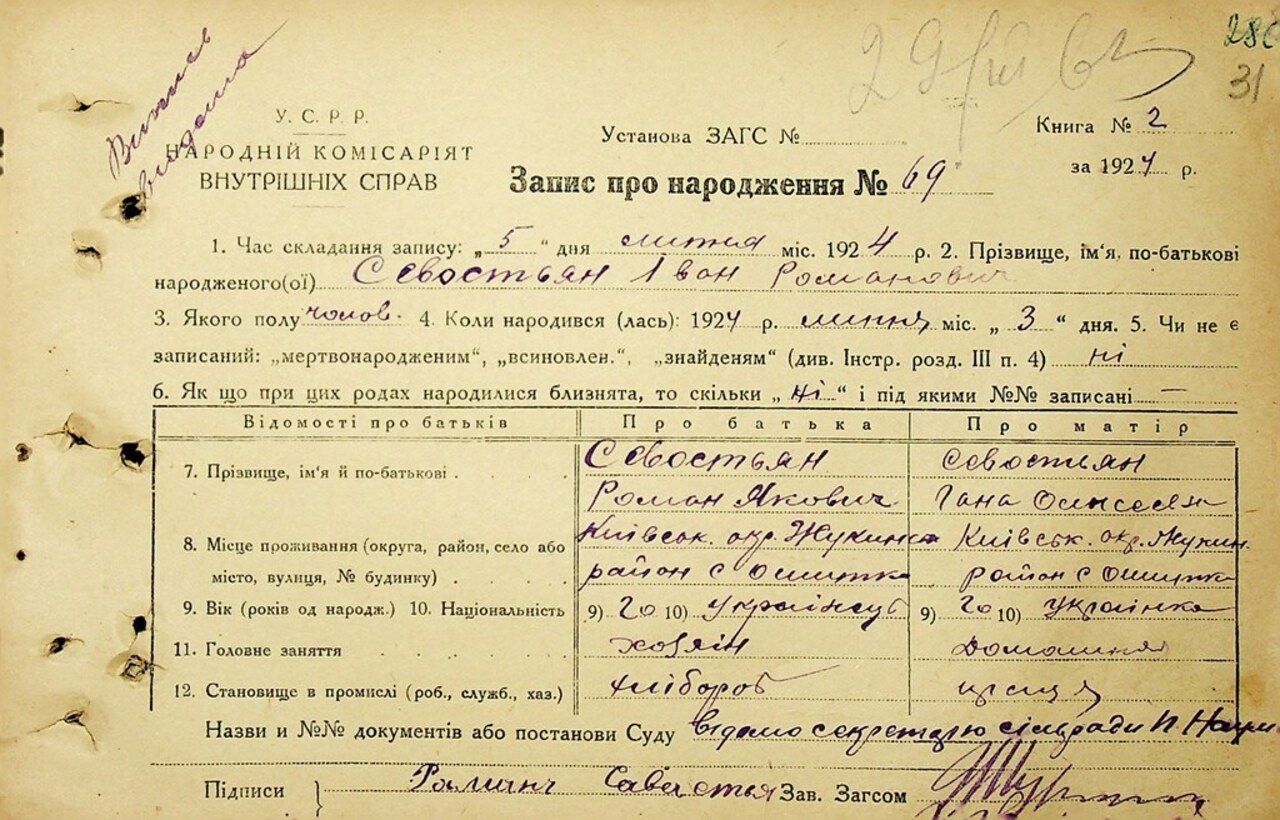 286
31
Випись
видана
У. С. Р. Р.
НАРОДНІЙ КОМІСАРІЯТ
ВНУТРІШНІХ СПРАВ
Установа ЗАГС №
Книга № 2
за 1924 р.
Запис про народження № 69
1. Час складання запису: „5“ дня липня міс. 1924 р. 2. Прізвище, ім'я, по-батькові
народженого(ої) Севостьян Іван Романович
3. Якого полу чолов. 4. Коли народився (лась): 1924 р. липня міс. „3“ дня. 5. Чи не є
записаний: „мертвонародженим“, „всиновлен.“, „знайденям“ (див. Інстр. розд. III п. 4) ні
6. Як що при цих родах народилися близнята, то скільки „ні“ і під якими №№ записані —
Відомості про батьків Про батька Про матір
7. Прізвище, ім'я й по-батькові . Севостьян Севостьян
Роман Якович Гана
8. Місце проживання (округа, район, село або Київськ. окр. Київськ. окр.
місто, вулиця, № будинку) район с Ошитка район с Ошитка
9. Вік (років од народж.) 10. Національність 9) 20 10) Українець 9) 20 10) Українка
11. Головне заняття хозяін Домашня
12. Становище в промислі (роб., служб., хаз.) хлібороб
Назви и №№ документів або постанови Суду відомо секретарю сільради
Підписи Зав. Загсом